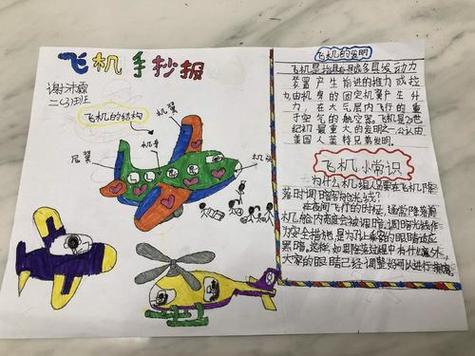 飞机手抄报
谢沐霖
二(3)班
飞机的结构
机翼
机身
尾翼
机头
飞机的发明
飞机是指具有一台或多具发动力
装置产生前进的推力或拉
力,由机身的固定机翼产生升
力,在大气层内飞行的重
于空气的航空器。飞机是20世
纪初最重大的发明之一,公认由
美国人莱特兄弟发明。
飞机小常识
为什么机组人员要在飞机降
落时调暗客舱光线?
在夜间飞行的时候,通常降落前
机舱内亮度会被调暗。调暗光线作
为安全措施,是为了让乘客的眼睛适应
黑暗,这样,如果降落过程中有什么意外,
大家的眼睛已经调整好可以进行